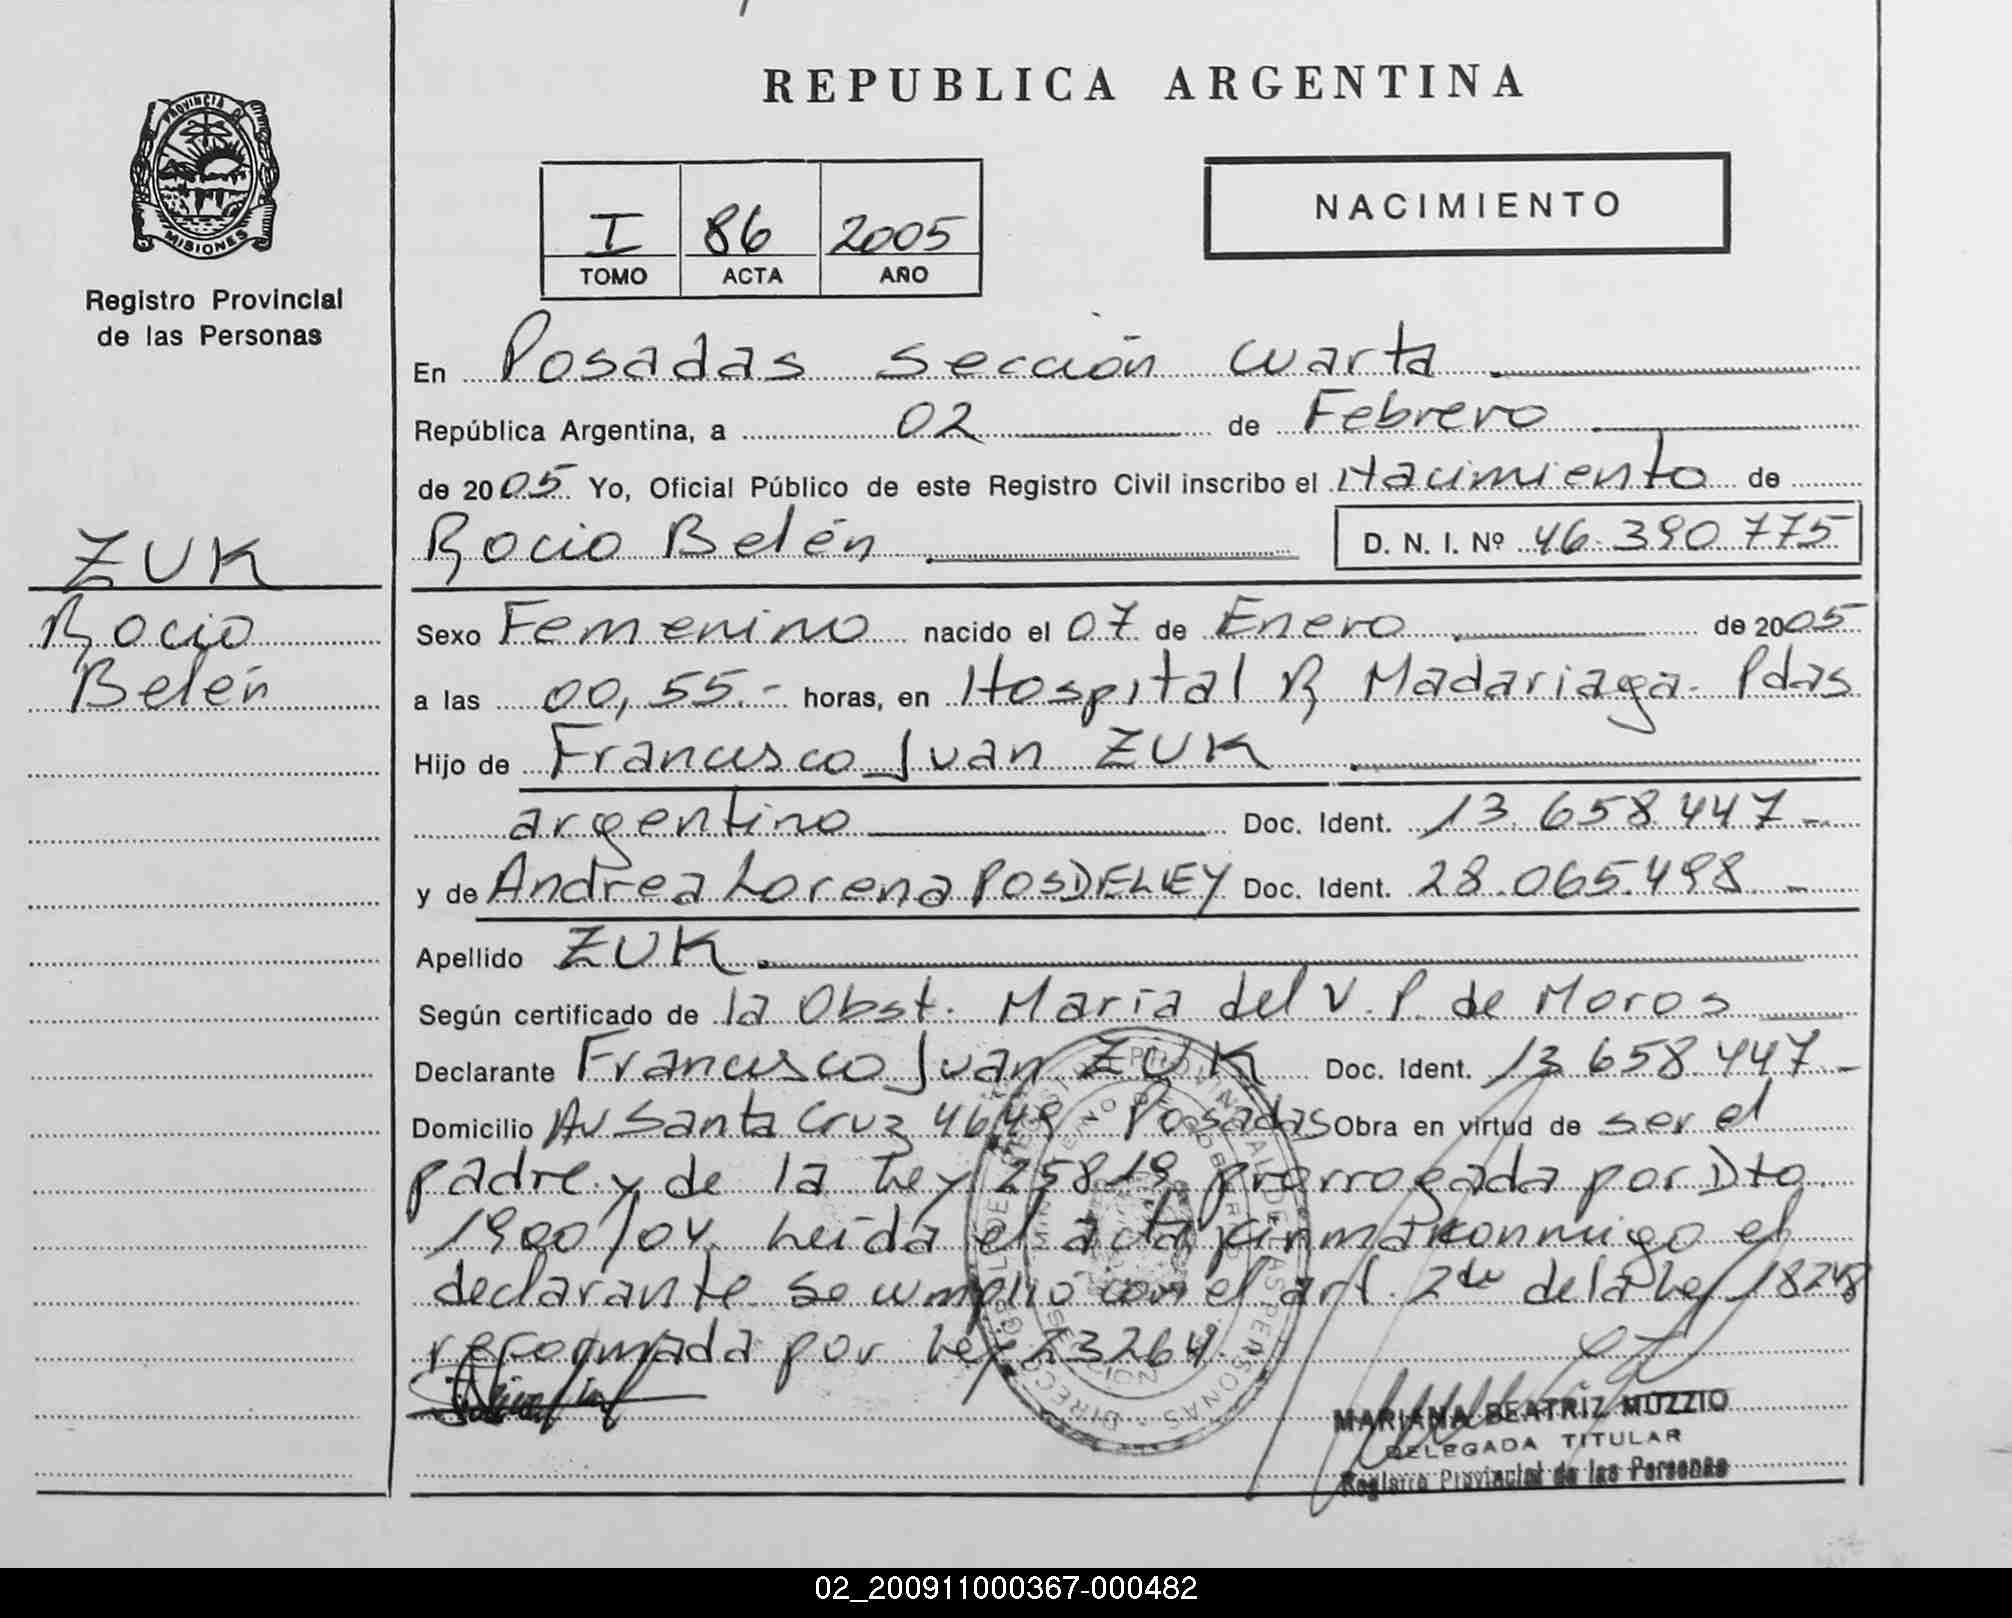 REPUBLICA ARGENTINA
PROVINCIA DE
MISIONES
Registro Provincial
de las Personas
I 86 2005
TOMO ACTA AÑO
NACIMIENTO
En Posadas sección cuarta
República Argentina, a 02 de Febrero
de 2005 Yo, Oficial Público de este Registro Civil inscribo el Nacimiento de
Rocio Belén D. N. I. Nº 46.390.775
ZUK
Rocio
Belén
Sexo Femenino nacido el 07 de Enero de 2005
a las 00,55.- horas, en Hospital R Madariaga - Pdas
Hijo de Francisco Juan ZUK
argentino Doc. Ident. 13.658.447-
y de Andrea Lorena POSDELEY Doc. Ident. 28.065.498-
Apellido ZUK.
Según certificado de la Obst. María del V. P. de Moros
Declarante Francisco Juan ZUK Doc. Ident. 13.658.447-
Domicilio Av Santa Cruz 4649 - Posadas Obra en virtud de ser el
padre y de la Ley 25819 prorrogada por Dto.
1900/04. Leída el acta, firma conmigo el
declarante se cumplió con el art. 2do de la Ley 18248
reformada por Ley 23264.
MARIANA BEATRIZ MUZZIO
DELEGADA TITULAR
Registro Provincial de las Personas
02_200911000367-000482